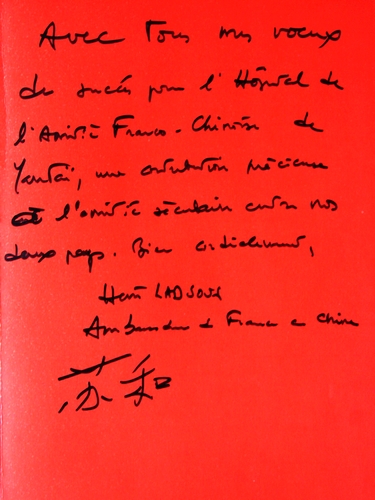 Avec tous mes voeux
de succès pour l'Hôpital de
l'Amitié Franco-Chinoise de
Yantai, une précieuse
de l'amitié séculaire entre nos
deux pays. Bien cordialement,
Hervé LADSOUS
Ambassadeur de France en Chine
苏和